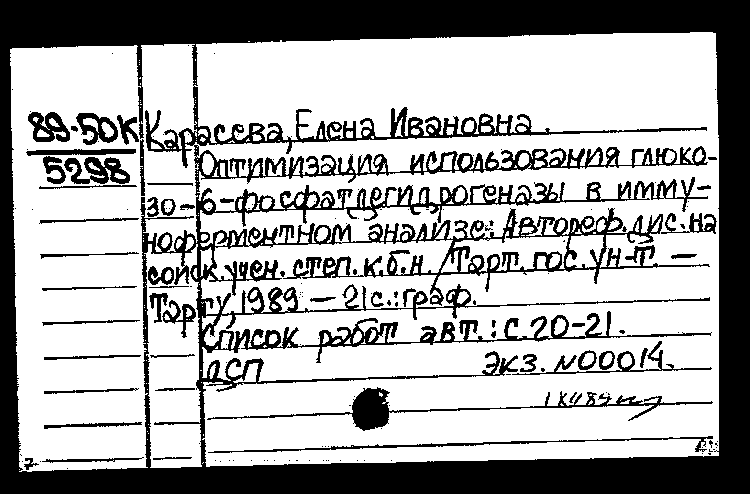 89-50К Карасева, Елена Ивановна.
5298 Оптимизация использования глюко-
зо-6-фосфатдегидрогеназы в имму-
ноферментном анализе: Автореф. дис. на
соиск. учен. степ. к.б.н. / Тарт. гос. ун-т. —
Тарту, 1989. — 21 с.: граф.
Список работ авт.: с. 20-21.
ДСП Экз. N00014.